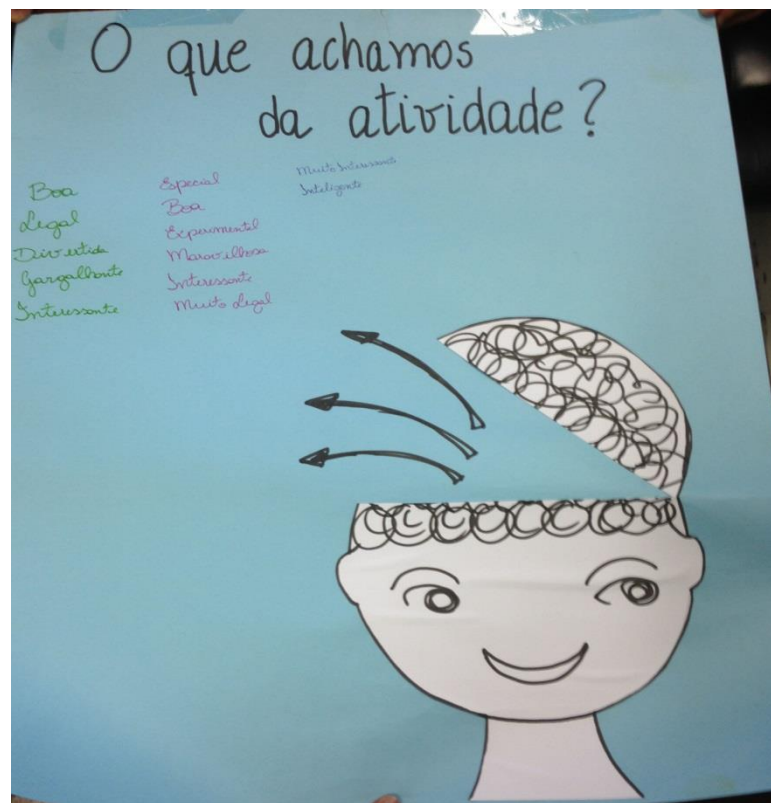 O que achamos
da atividade?
Boa
Legal
Divertida
Gargalhante
Interessante
Especial
Boa
Experimental
Maravilhosa
Interessante
Muito Legal
Muito Interessante
Inteligente